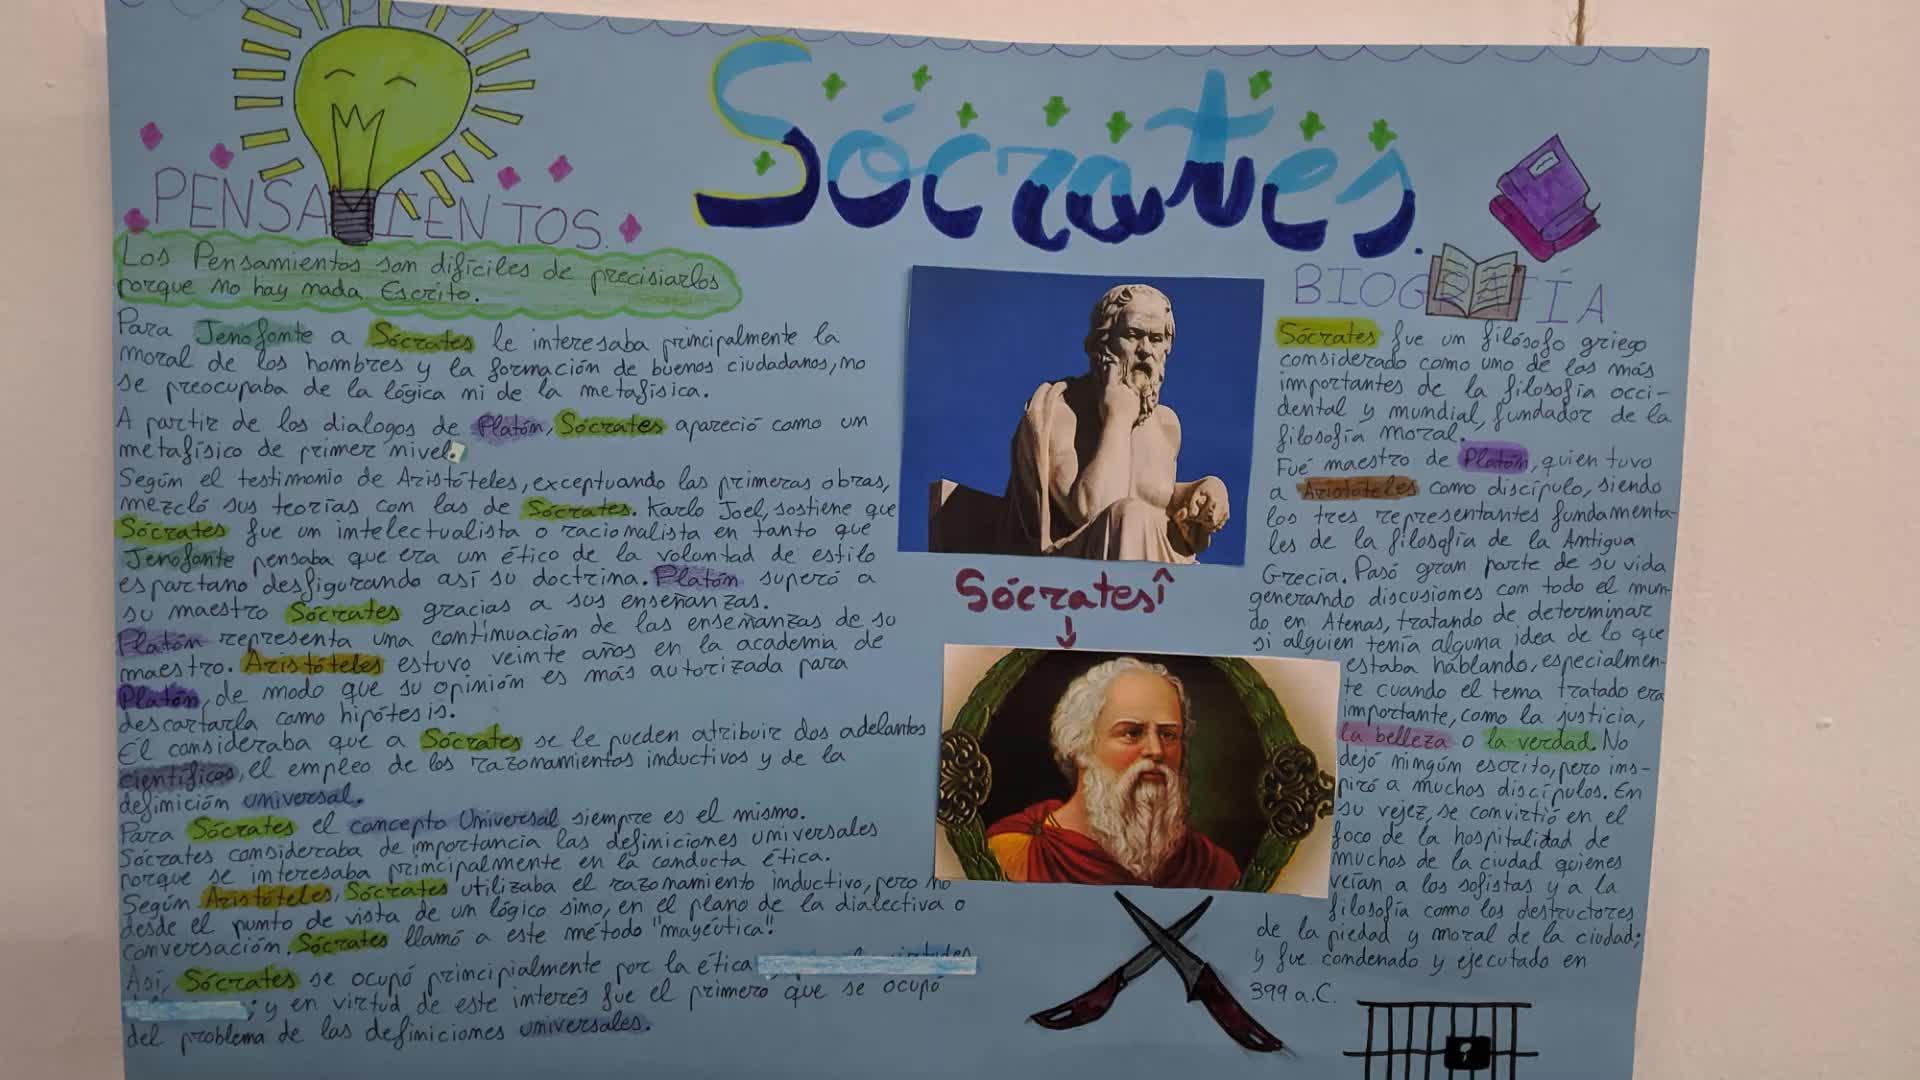 Sócrates.
PENSAMIENTOS.
Los Pensamientos son difíciles de precisiarlos
porque no hay nada Escrito.
Para Jenofonte a Sócrates le interesaba principalmente la
moral de los hombres y la formación de buenos ciudadanos, no
se preocupaba de la lógica ni de la metafísica.
A partir de los dialogos de Platón, Sócrates apareció como un
metafísico de primer nivel.
Según el testimonio de Aristóteles, exceptuando las primeras obras,
mezcló sus teorías con las de Sócrates. Karlo Joel, sostiene que
Sócrates fue un intelectualista o racionalista en tanto que
Jenofonte pensaba que era un ético de la voluntad de estilo
espartano desfigurando así su doctrina. Platón superó a
su maestro Sócrates gracias a sus enseñanzas.
Platón representa una continuación de las enseñanzas de su
maestro. Aristóteles estuvo veinte años en la academia de
Platón, de modo que su opinión es más autorizada para
descartarla como hipótesis.
El consideraba que a Sócrates se le pueden atribuir dos adelantos
científicos, el empleo de los razonamientos inductivos y de la
definición universal.
Para Sócrates el concepto Universal siempre es el mismo.
Sócrates consideraba de importancia las definiciones universales
porque se interesaba principalmente en la conducta ética.
Según Aristóteles, Sócrates utilizaba el razonamiento inductivo, pero no
desde el punto de vista de un lógico sino, en el plano de la dialectiva o
conversación. Sócrates llamó a este método "mayéutica".
Así, Sócrates se ocupó principialmente por la ética
; y en virtud de este interés fue el primero que se ocupó
del problema de las definiciones universales.
Sócrates↑
↓
BIOGRAFÍA
Sócrates fue un filósofo griego
considerado como uno de los más
importantes de la filosofía occi-
dental y mundial, fundador de la
filosofía moral.
Fué maestro de Platón, quien tuvo
a Aristóteles como discípulo, siendo
los tres representantes fundamenta-
les de la filosofía de la Antigua
Grecia. Pasó gran parte de su vida
generando discusiones con todo el mun-
do en Atenas, tratando de determinar
si alguien tenía alguna idea de lo que
estaba hablando, especialmen-
te cuando el tema tratado era
importante, como la justicia,
la belleza o la verdad. No
dejó ningún escrito, pero ins-
piró a muchos discípulos. En
su vejez, se convirtió en el
foco de la hospitalidad de
muchos de la ciudad quienes
veían a los sofistas y a la
filosofía como los destructores
de la piedad y moral de la ciudad;
y fue condenado y ejecutado en
399 a.C.